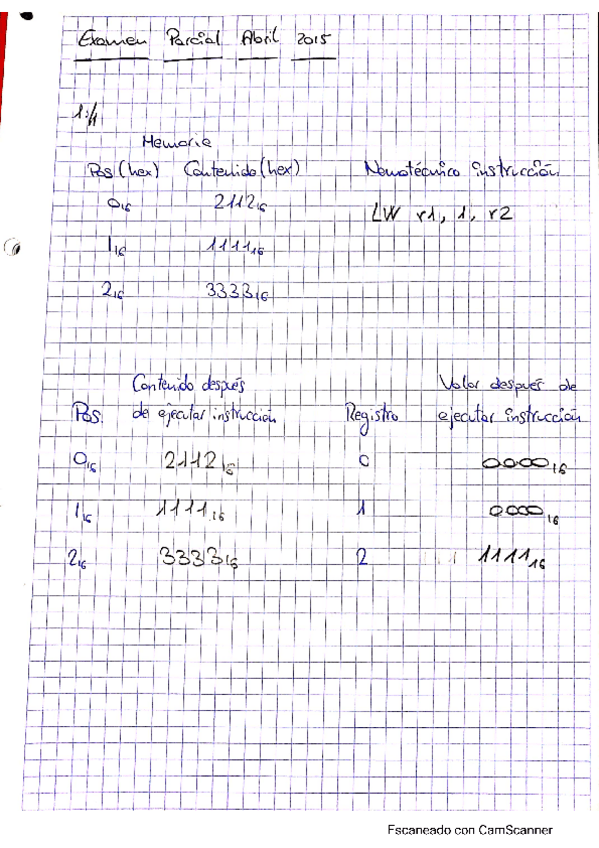 Examen Parcial Abril 2015
1:/1
Memoria
Pos (hex) Contenido (hex) Nemotécnico instrucción
0₁₆ 2112₁₆ LW r1, 1, r2
1₁₆ 1111₁₆
2₁₆ 3333₁₆
Contenido después Valor después de
Pos. de ejecutar instrucción Registro ejecutar instrucción
0₁₆ 2112₁₆ 0 0000₁₆
1₁₆ 1111₁₆ 1 0000₁₆
2₁₆ 3333₁₆ 2 1111₁₆
Escaneado con CamScanner